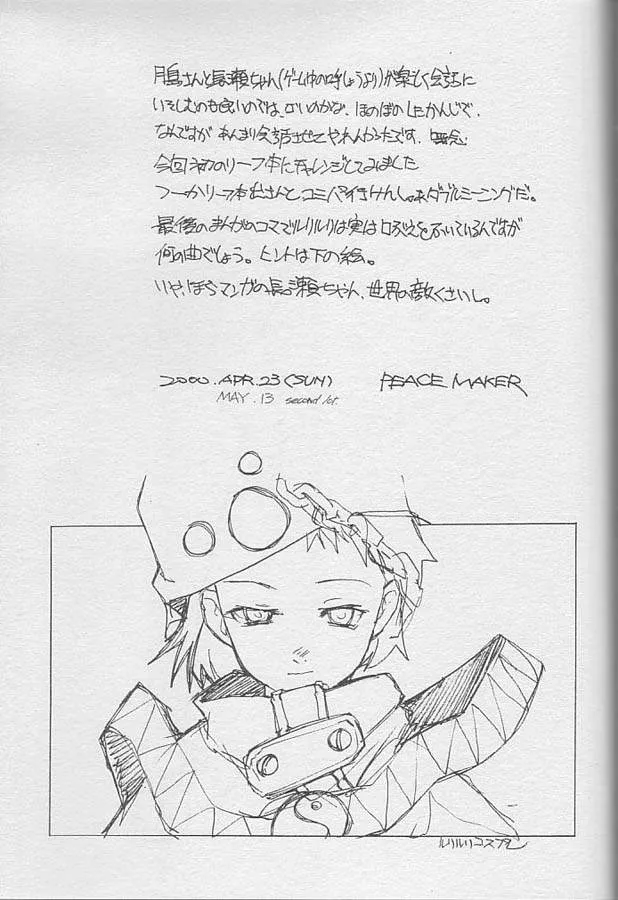 月島さんと長瀬ちゃん(ゲーム中の呼しょうより)が楽しく会話に
いそしむのも良いのでは、ないのかな、ほのぼのしたかんじで、
なんですが あんまり会話させてやれんかったです、無念
今回初のリーフ本にチャレンジしてみました
フーかリーフ本出さんと、コミパイきけんしゃね ダブルミーニングだ。
最後のまんがのコマでルリルリは実は口ぶえをふいているんですが
何の曲でしょう。ヒントは下の絵。
いや、ぼくらマンガの長瀬ちゃん、世界の敵くさいし。
2000.APR.23(SUN) PEACE MAKER
MAY.13 second lot.
ルリルリコスプレ